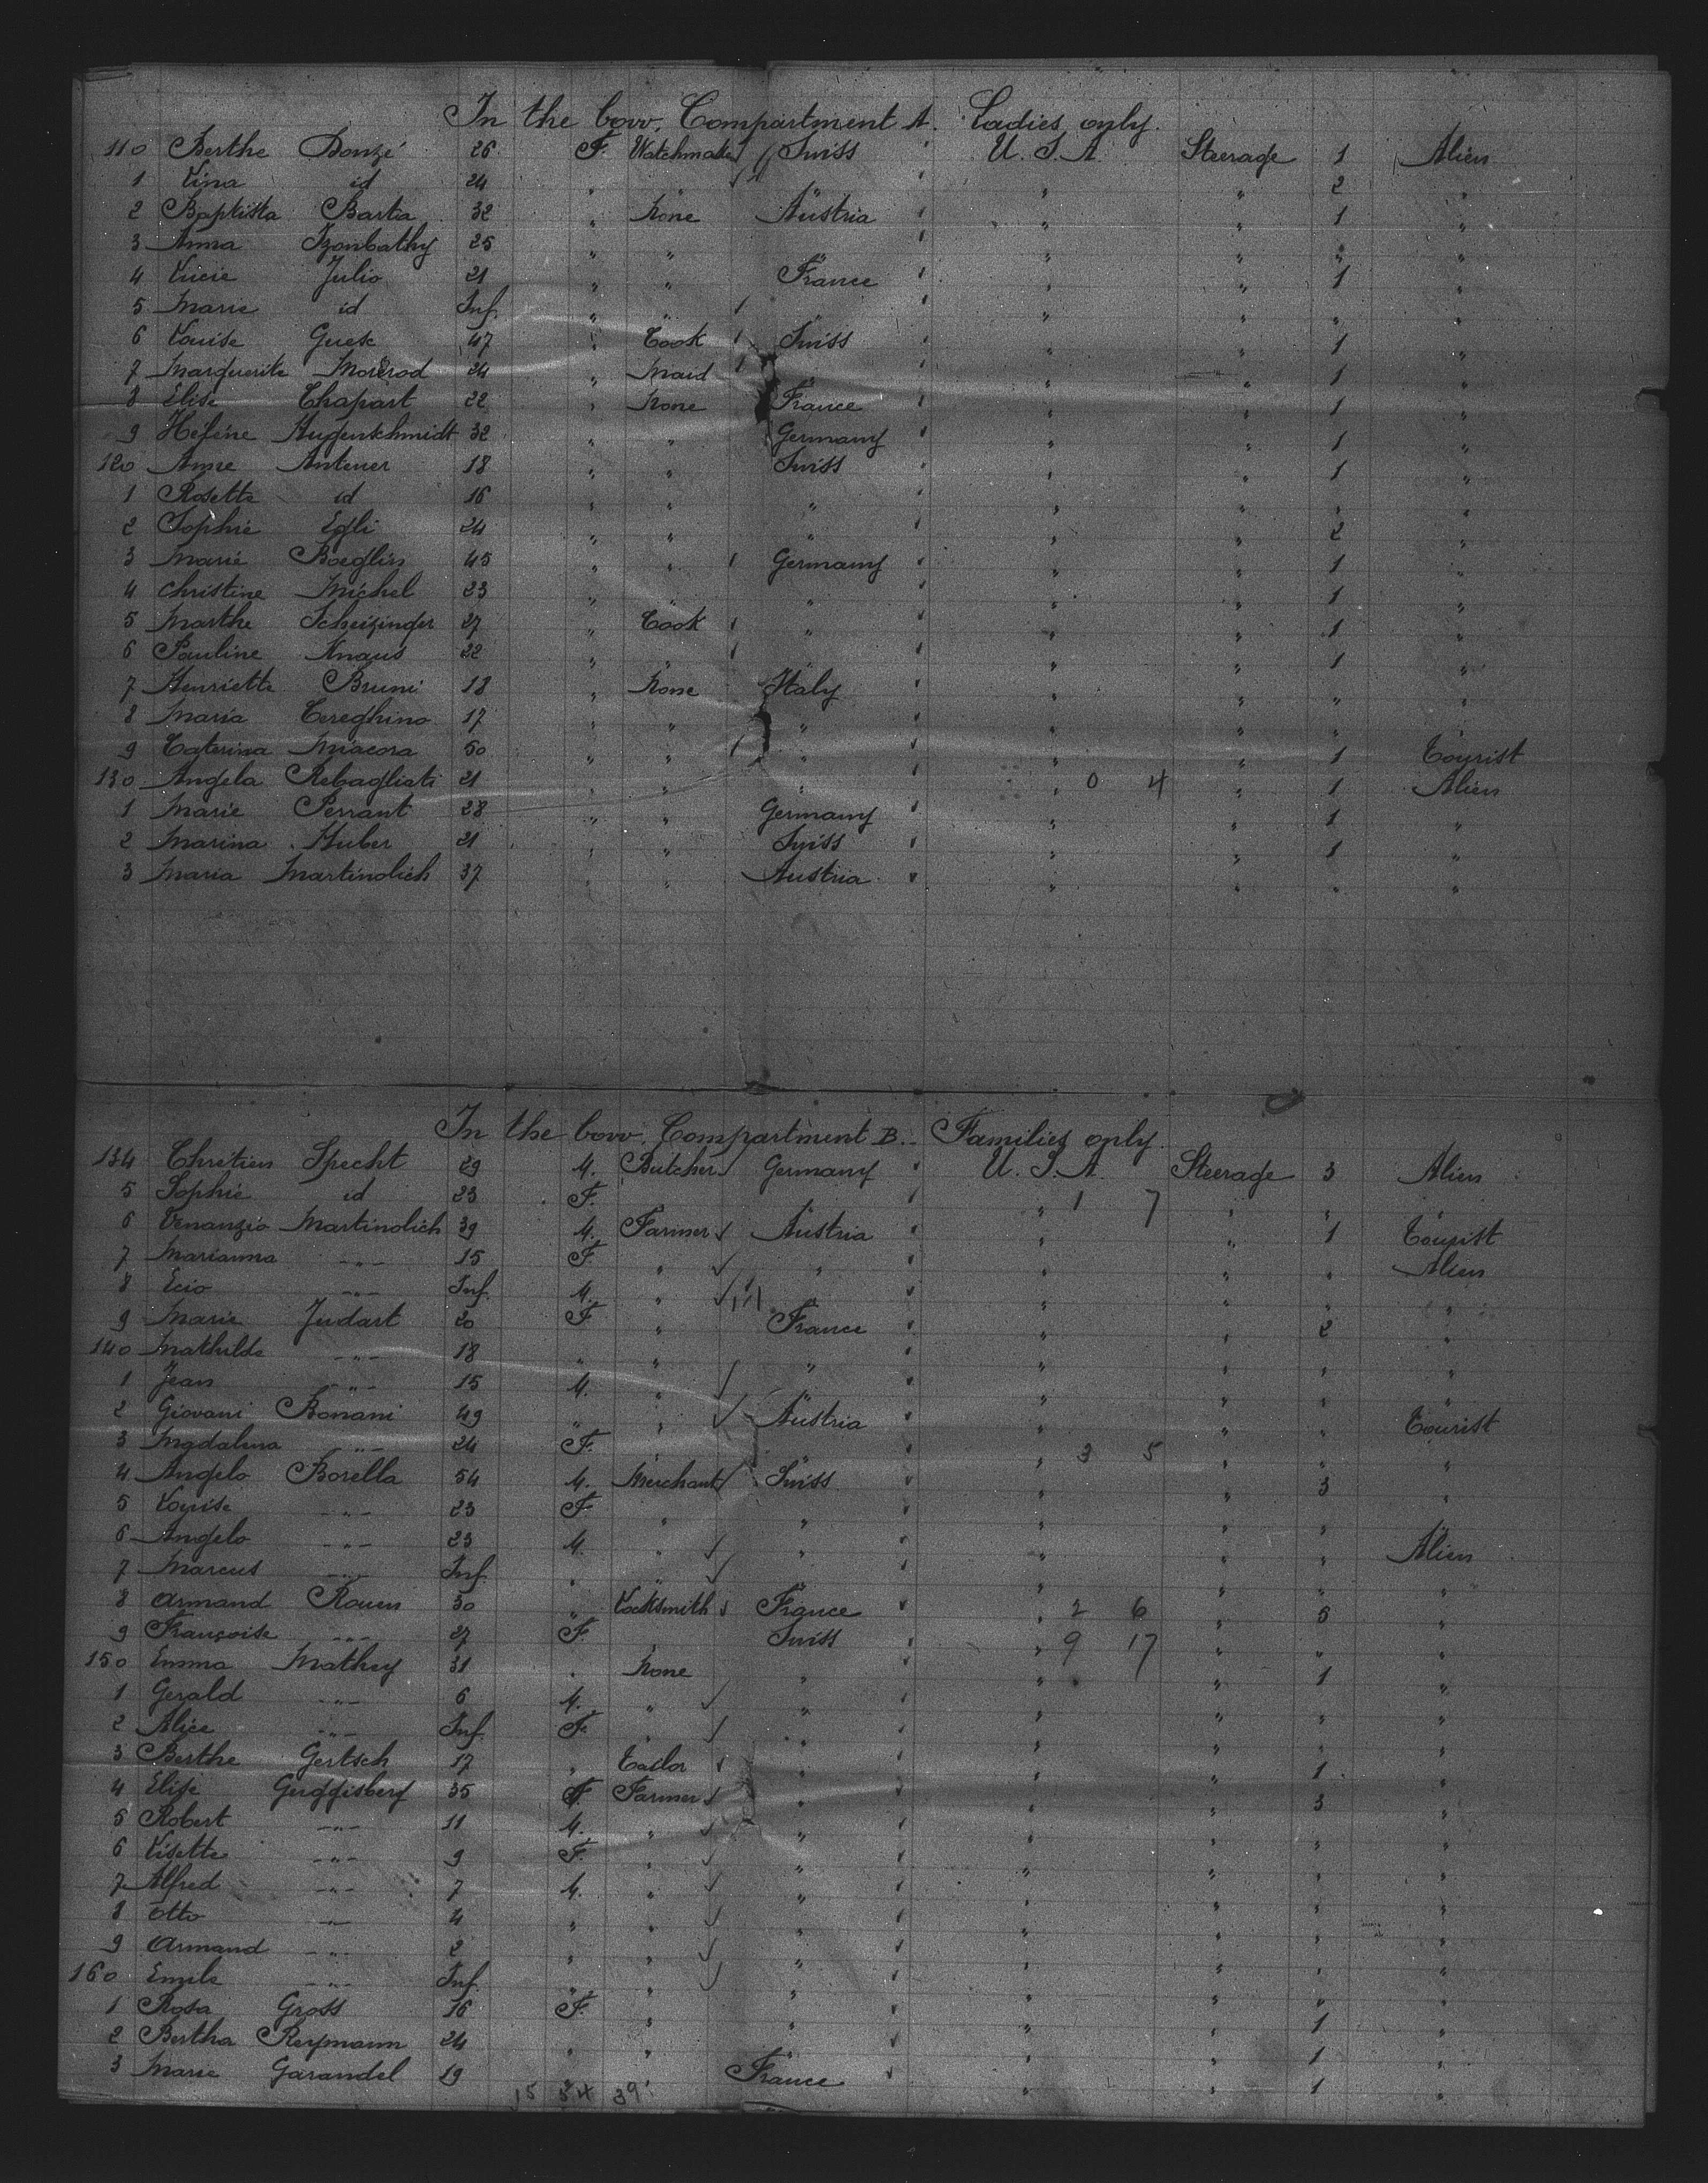 In the bow. Compartment A. Ladies only.
110 Berthe Donzé 26 F. Watchmaker Swiss U.S.A. Steerage 1 Alien
1 Lina id 24 " " " " " 2 "
2 Baptista Bartia 32 " None Austria " " 1 "
3 Anna Szonbathy 25 " " " " " "
4 Lucie Julio 21 " " France " " 1 "
5 Marie id Inf. " " " " " "
6 Louise Guex 47 " Cook Swiss " " 1 "
7 Marguerite Morerod 24 " Maid " " 1 "
8 Elise Chapart 22 " None France " " 1 "
9 Heléne Augenschmidt 32 " " Germany " " 1 "
120 Anne Antener 18 " " Swiss " " 1 "
1 Rosette id 16 " " " " " " "
2 Sophie Egli 24 " " " " " 2 "
3 Marie Boeglin 45 " " Germany " " 1 "
4 Christine Michel 23 " " " " " 1 "
5 Marthe Scheizinger 27 " Cook " " " 1 "
6 Pauline Knaus 22 " " " " " 1 "
7 Henriette Bruni 18 " None Italy " " " "
8 Maria Cereghino 17 " " " " " " "
9 Caterina Miacora 50 " " " " " 1 Tourist
130 Angela Rebagliati 21 " " " " 0 4 " 1 Alien
1 Marie Perrant 28 " " Germany " " 1 "
2 Marina Huber 21 " " Swiss " " 1 "
3 Maria Martinolich 37 " Austria " " " "
In the bow. Compartment B. Families only.
134 Chrétien Specht 29 M. Butcher Germany U.S.A. Steerage 3 Alien
5 Sophie id 23 F. " 1 7 " "
6 Venanzio Martinolich 39 M. Farmer Austria " " 1 Tourist
7 Marianna -"- 15 F. " " " " " Alien
8 Ecio -"- Inf. M. " " " " " "
9 Marie Judart 20 F " France " " 2 "
140 Mathilde -"- 18 " " " " " " "
1 Jean -"- 15 M. " " " " "
2 Giovani Bonani 49 " " Austria " " " Tourist
3 Madalena -"- 24 F. " " " 3 5 " " "
4 Angelo Borella 54 M. Merchant Swiss " " 3 "
5 Louise -"- 23 F. " " " " "
6 Angelo -"- 23 M. " " " " " Alien
7 Marcus -"- Inf. " " " " " "
8 Armand Rouen 30 " Locksmith France " 2 6 " 5 "
9 Françoise -"- 27 F. Swiss " 9 17 " " "
150 Emma Mathey 31 " None " " " 1 "
1 Gerald -"- 6 M. " " " " " "
2 Alice -"- Inf. F. " " " " " "
3 Berthe Gertsch 17 " Tailor " " " 1 "
4 Elise Guggisberg 35 F. Farmer " " " 3 "
5 Robert -"- 11 M. " " " " " "
6 Lisette -"- 9 F. " " " " " "
7 Alfred -"- 7 M. " " " " " "
8 Otto -"- 4 " " " " " " "
9 Armand -"- 2 " " " " " " "
160 Emile -"- Inf. " " " " " " "
1 Rosa Gross 16 F. " " " " 1 "
2 Bertha Reymann 24 " " " " " 1 "
3 Marie Garandel 19 France " " 1 "
15 54 39